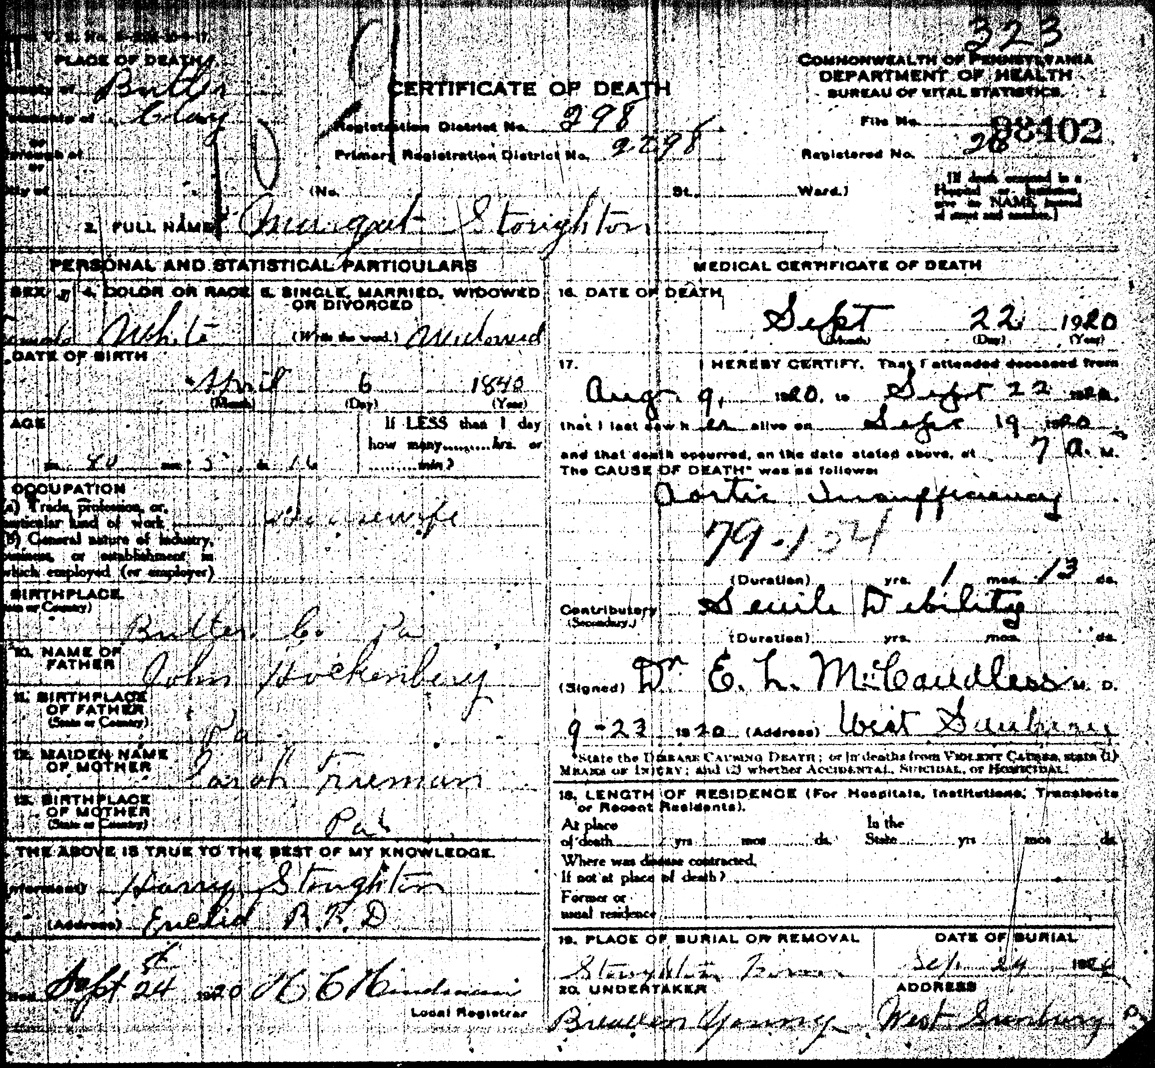 323
COMMONWEALTH OF PENNSYLVANIA
DEPARTMENT OF HEALTH
BUREAU OF VITAL STATISTICS.
PLACE OF DEATH
Butler
Clay
CERTIFICATE OF DEATH
Registration District No. 298
Primary Registration District No. 2298
File No. 98402
Registered No. 28
or
or
(No. St., Ward.)
[If death occurred in a
Hospital or Institution,
give its NAME instead
of street and number.]
2. FULL NAME Margaret Stoughton
PERSONAL AND STATISTICAL PARTICULARS
SEX 4. COLOR OR RACE 5. SINGLE, MARRIED, WIDOWED
OR DIVORCED
White (Write the word.) Widowed
DATE OF BIRTH
April 6 1840
(Month) (Day) (Year)
AGE
If LESS than 1 day
how many......hrs. or
......min?
80 5 16
OCCUPATION
(a) Trade, profession, or,
particular kind of work Housewife
(b) General nature of industry,
business, or establishment in
which employed (or employer)
BIRTHPLACE
(State or Country)
Butler Co Pa
10. NAME OF
FATHER
John Hockenbery
11. BIRTHPLACE
OF FATHER
(State or Country)
Pa
12. MAIDEN NAME
OF MOTHER
Sarah
13. BIRTHPLACE
OF MOTHER
(State or Country)
Pa
THE ABOVE IS TRUE TO THE BEST OF MY KNOWLEDGE.
(Informant) Harry Stoughton
(Address) Euclid R.F.D
Sept 24 1920 H C Hindman
Local Registrar
MEDICAL CERTIFICATE OF DEATH
16. DATE OF DEATH
Sept 22 1920
(Month) (Day) (Year)
17. I HEREBY CERTIFY, That I attended deceased from
Aug 9, 1920, to Sept 22 1920,
that I last saw h er alive on Sept 19 1920
and that death occurred, on the date stated above, at 7 a. M.
The CAUSE OF DEATH* was as follows:
Aortic Insufficiency
79-154
(Duration) yrs. 1 mos. 13 ds.
Contributory Senile Debility
(Secondary.)
(Duration) yrs. mos. ds.
(Signed) Dr E. L. McCandless M. D.
9-23 1920 (Address) West Sunbury
*State the DISEASE CAUSING DEATH; or in deaths from VIOLENT CAUSES, state (1)
MEANS OF INJURY; and (2) whether ACCIDENTAL, SUICIDAL, or HOMICIDAL.
18. LENGTH OF RESIDENCE (For Hospitals, Institutions, Transients
or Recent Residents).
At place In the
of death yrs mos ds. State yrs mos ds.
Where was disease contracted,
If not at place of death?
Former or
usual residence
19. PLACE OF BURIAL OR REMOVAL DATE OF BURIAL
Stoughton Sep. 24 1920
20. UNDERTAKER ADDRESS
Young West Sunbury